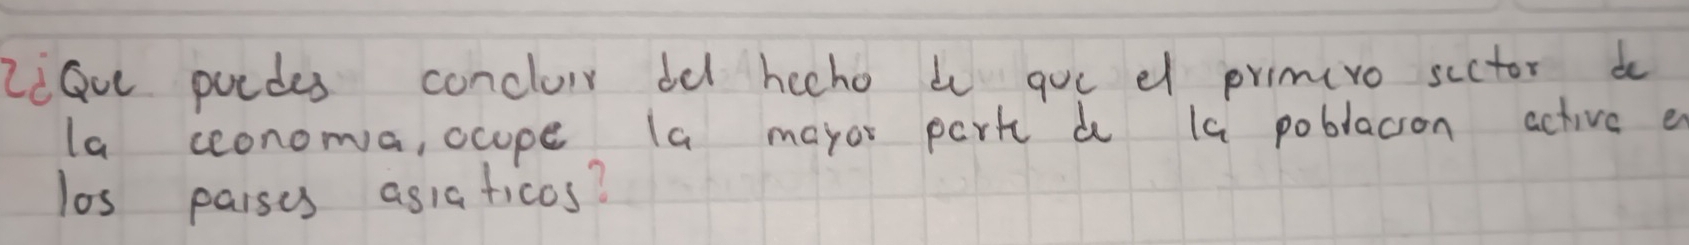 2¿Que puedes concluir del hecho de que el primero sector de
la economia, ocupe la mayor parte de la poblacion activa en
los paises asiaticos?